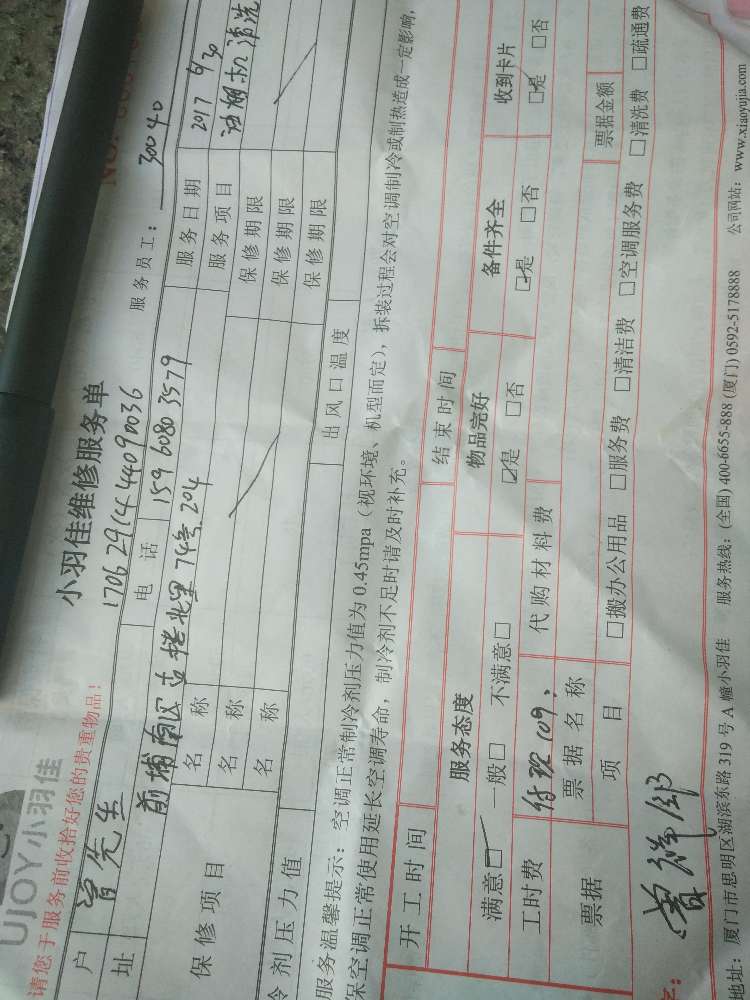 UJOY小羽佳
请您于服务前收拾好您的贵重物品！
小羽佳维修服务单
NO.
1706291444090036
服务员工： 30040
户 曾先生 电话 159 6080 3579 服务日期 2017 6/30
址 前埔南区古楼北里74号204 服务项目 油烟机清洗
保修项目 名称 保修期限
名称 保修期限
名称 保修期限
冷剂压力值 出风口温度
服务温馨提示：空调正常制冷剂压力值为 0.45mpa（视环境、机型而定），拆装过程会对空调制冷或制热造成一定影响，
保空调正常使用延长空调寿命，制冷剂不足时请及时补充。
开工时间 结束时间
服务态度 物品完好 备件齐全 收到卡片
满意□ 一般□ 不满意□ □是 □否 □是 □否 □是 □否
工时费 109. 代购材料费
票据 票据名称 票据金额
项目 □搬办公用品 □服务费 □清洁费 □空调服务费 □清洗费 □疏通费
地址：厦门市思明区湖滨东路 319 号 A 幢小羽佳 服务热线：(全国) 400-6655-888 (厦门) 0592-5178888 公司网站：www.xiaoyujia.com